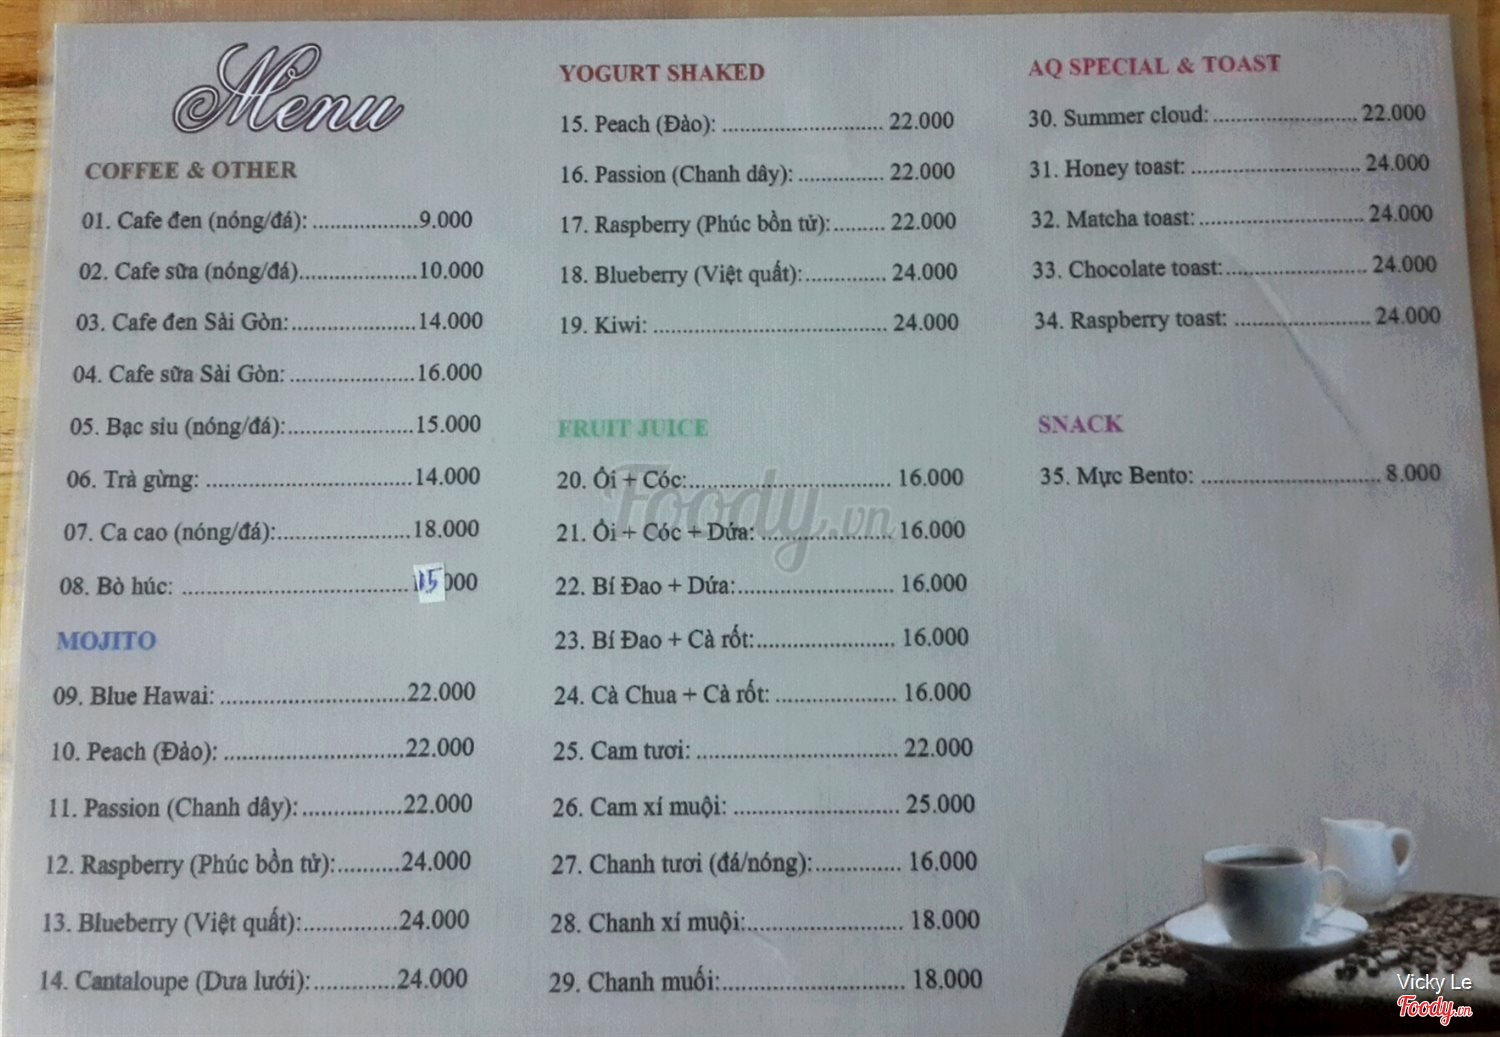 Menu
COFFEE & OTHER
01. Cafe đen (nóng/đá): ..................9.000
02. Cafe sữa (nóng/đá)....................10.000
03. Cafe đen Sài Gòn:.....................14.000
04. Cafe sữa Sài Gòn: .....................16.000
05. Bạc siu (nóng/đá):.....................15.000
06. Trà gừng: ...................................14.000
07. Ca cao (nóng/đá):.......................18.000
08. Bò húc: ....................................... 15.000
MOJITO
09. Blue Hawai: ...............................22.000
10. Peach (Đào): ..............................22.000
11. Passion (Chanh dây): .................22.000
12. Raspberry (Phúc bồn tử):...........24.000
13. Blueberry (Việt quất):................24.000
14. Cantaloupe (Dưa lưới):..............24.000
YOGURT SHAKED
15. Peach (Đào): ........................... 22.000
16. Passion (Chanh dây): .............. 22.000
17. Raspberry (Phúc bồn tử):......... 22.000
18. Blueberry (Việt quất):.............. 24.000
19. Kiwi: ....................................... 24.000
FRUIT JUICE
20. Ổi + Cóc:.................................. 16.000
21. Ổi + Cóc + Dứa: ...................... 16.000
22. Bí Đao + Dứa:.......................... 16.000
23. Bí Đao + Cà rốt:....................... 16.000
24. Cà Chua + Cà rốt: .................... 16.000
25. Cam tươi: ................................. 22.000
26. Cam xí muội: ........................... 25.000
27. Chanh tươi (đá/nóng):.............. 16.000
28. Chanh xí muội:.......................... 18.000
29. Chanh muối:.............................. 18.000
AQ SPECIAL & TOAST
30. Summer cloud: ........................ 22.000
31. Honey toast: ............................ 24.000
32. Matcha toast: ........................... 24.000
33. Chocolate toast:....................... 24.000
34. Raspberry toast: ....................... 24.000
SNACK
35. Mực Bento: .............................. 8.000
Foody.vn
Vicky Le
Foody.vn